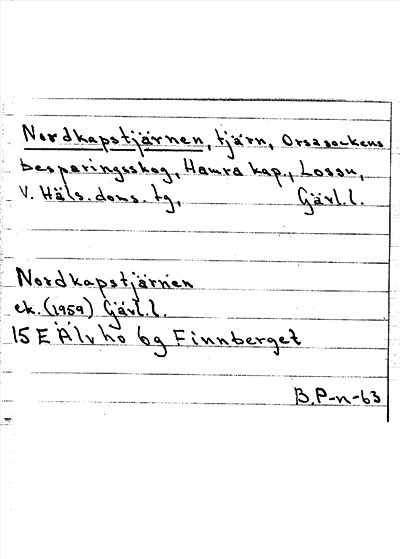 Nordkapstjärnen, tjärn, Orsasockens
besparingsskog, Hamra kap., Lossn,
V. Häls. doms. tg, Gävl. l.
Nordkapstjärnen
ek. (1959) Gävl. l.
15 E Älvho 6g Finnberget
B. P-n-63